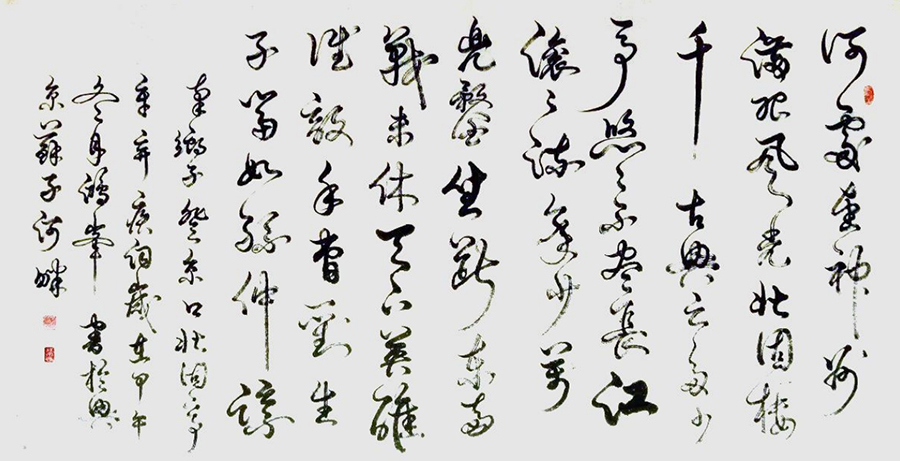 何處望神州
滿眼風光北固樓
千古興亡多少
事悠悠不盡長江
滾滾流年少萬
兜鍪坐斷東南
戰未休天下英雄
誰敵手曹劉生
子當如孫仲謀
南鄉子登京口北固亭
辛弃疾詞歲在甲午
冬月鴻峯書於興
京蘇子河畔